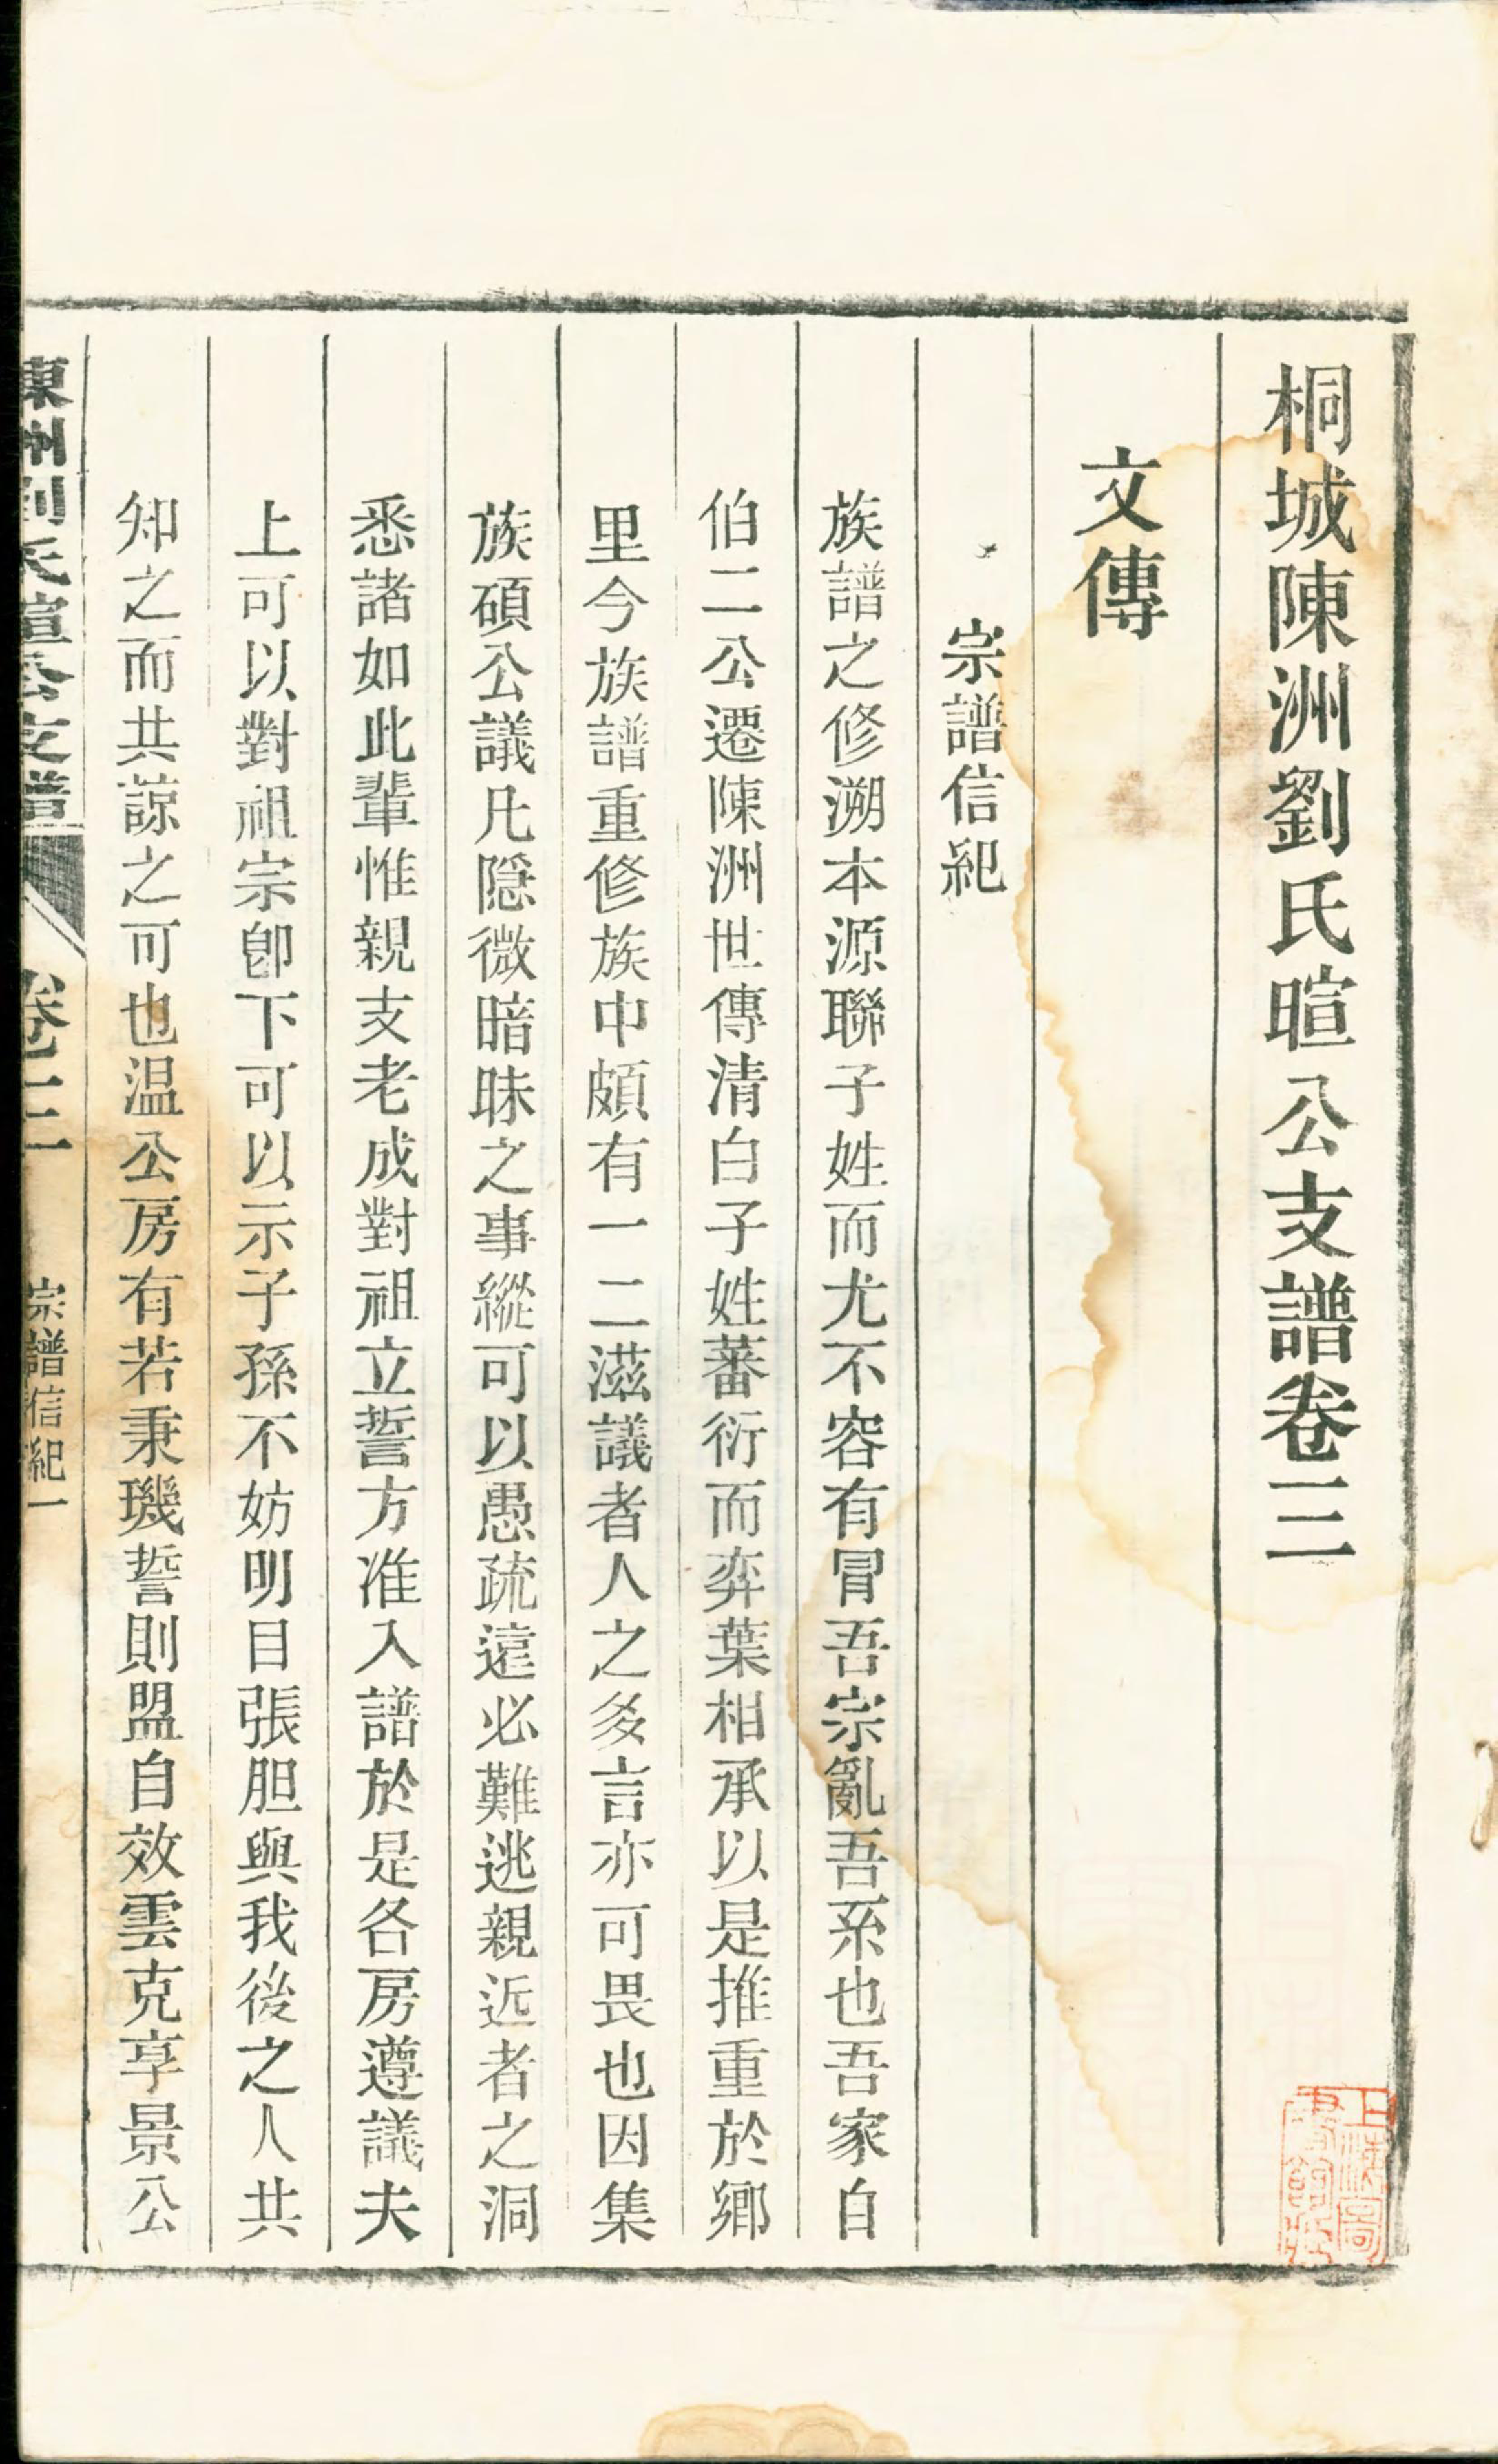 桐城陳洲劉氏暄公支譜卷二
文傳
宗譜信紀
族譜之修溯本源聯子姓而尤不容有冒吾宗亂吾系也吾家自
伯二公遷陳洲世傳清白子姓蕃衍而弈葉相承以是推重於鄉
里今族譜重修族中頗有一二滋議者人之多言亦可畏也因集
族碩公議凡隱微暗昧之事縱可以愚疏遠必難逃親近者之洞
悉諸如此輩惟親支老成對祖立誓方准入譜於是各房遵議夫
上可以對祖宗卽下可以示子孫不妨明目張胆與我後之人共
知之而共諒之可也温公房有若秉璣誓則盟自效雲克享景公
陳洲劉氏暄公支譜
卷二
宗譜信紀一